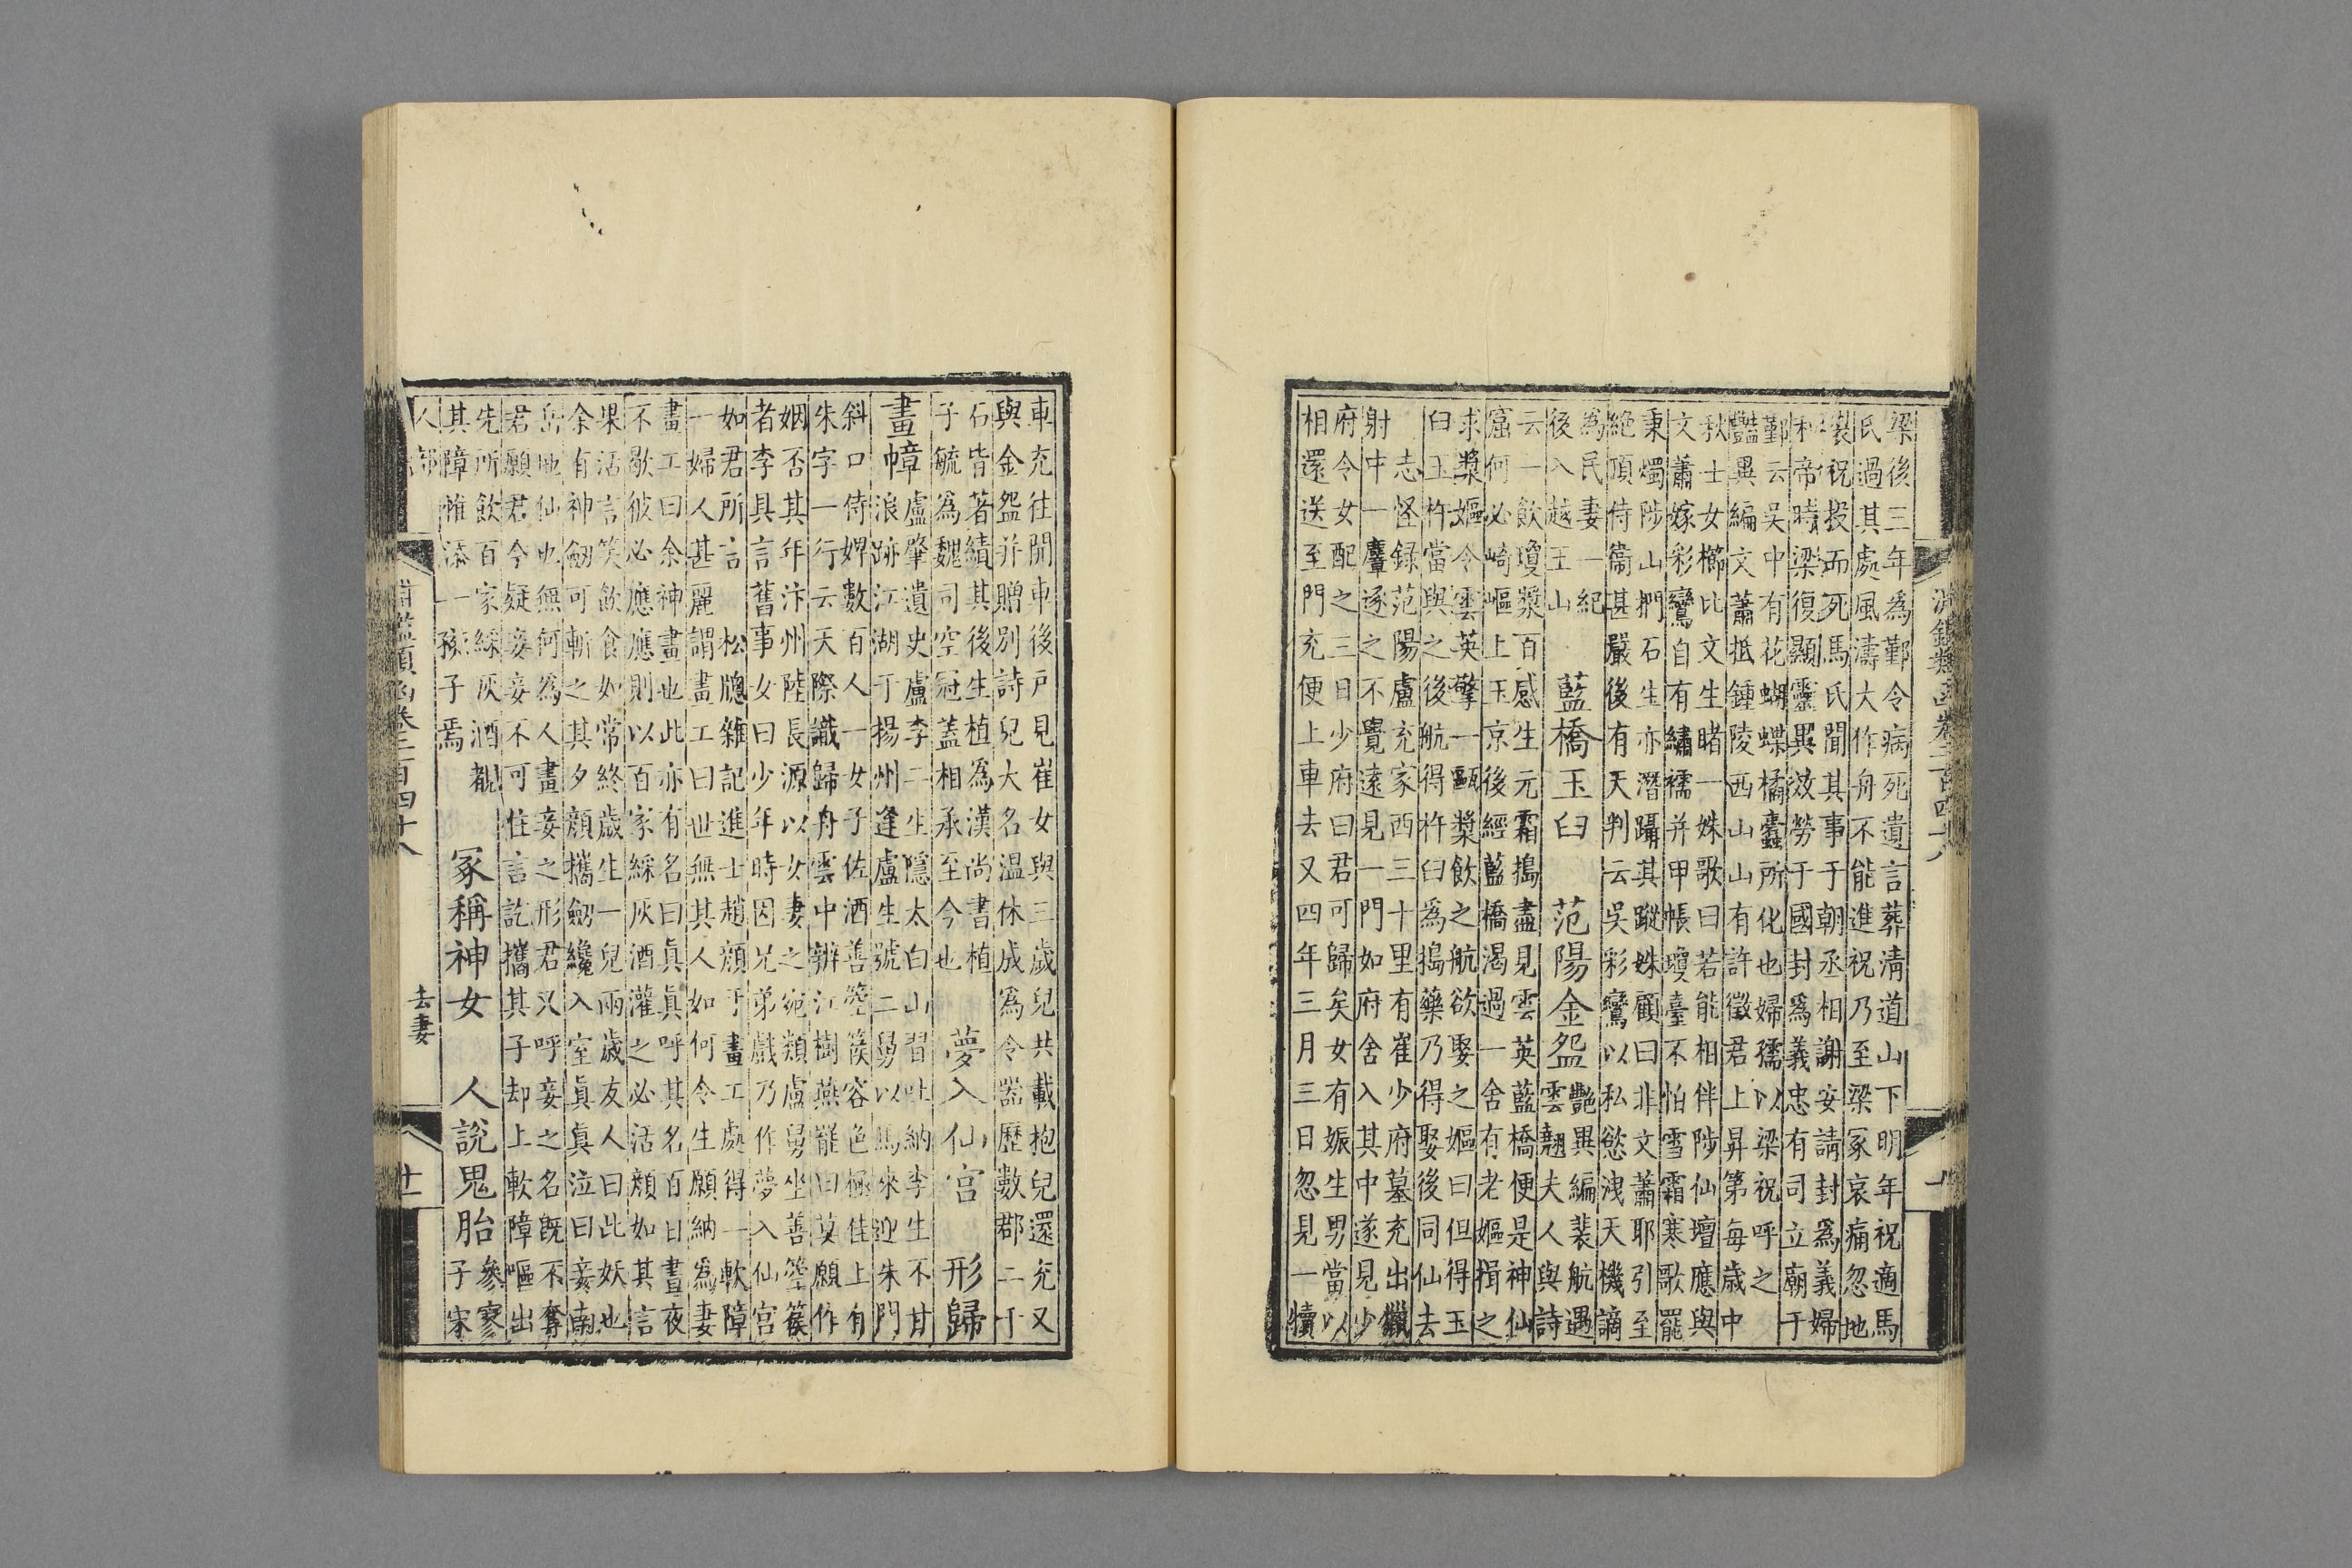 梁後三年為鄞令病死遺言葬清道山下明年祝適馬
氏過其處風濤大作舟不能進祝乃至梁冢哀痛忽地
裂祝投而死馬氏聞其事于朝丞相謝安請封爲義婦
和帝時梁復顯靈異效勞于國封爲義忠有司立廟于
鄞云吳中有花蝴蝶橘蠹所化也婦孺以梁祝呼之
豔異編文蕭抵鍾陵西山山有許徵君上昇第每歲中
秋士女櫛比文生睹一姝歌曰若能相伴陟仙壇應與
文蕭嫁彩鸞自有繡襦并甲帳瓊臺不怕雪霜寒歌罷
秉燭陟山捫石生亦潛躡其蹤姝顧曰非文蕭耶引至
絶頂侍衛甚嚴後有天判云吳彩鸞以私慾洩天機謫
為民妻一紀
後入越王山
藍橋玉臼 范陽金盌
豔異編裴航遇
雲翹夫人與詩
云一飲瓊漿百感生元霜搗盡見雲英藍橋便是神仙
窟何必崎嶇上玉京後經藍橋渴過一舍有老嫗揖之
求漿嫗令雲英擎一甌漿飲之航欲娶之嫗曰但得玉
臼玉杵當與之後航得杵臼為搗藥乃得娶後同仙去
志怪録范陽盧充家西三十里有崔少府墓充出獵
射中一麞逐之不覺遠見一門如府舍入其中遂見少
府令女配之三日少府曰君可歸矣女有娠生男當以
相還送至門充便上車去又四年三月三日忽見一犢
車充往開車後戸見崔女與三歲兒共載抱兒還充又
與金盌并贈別詩兒大名温休成為令器歷數郡二千
石皆著績其後生植為漢尚書植
子毓為魏司空冠蓋相承至今也
夢入仙宫 形歸
畫幛
盧肇遺史盧李二生隱太白山習吐納李生不甘
浪跡江湖于揚州逢盧生號二舅以馬來迎朱門
斜口侍婢數百人一女子佐酒善箜篌容色極佳上有
朱字一行云天際識歸舟雲中辨江樹燕罷曰莫願作
姻否其年汴州陸長源以女妻之宛類盧舅坐善箜篌
者李具言舊事女曰少年時因兄弟戲乃作夢入仙宫
如君所言 松牕雜記進士趙顔于畫工處得一軟障
一婦人甚麗謂畫工曰世無其人如何令生願納為妻
畫工曰余神畫也此亦有名曰真真呼其名百日晝夜
不歇彼必應應則以百家綵灰酒灌之必活顔如其言
果活言笑飲食如常終歲生一兒兩歲友人曰此妖也
余有神劒可斬之其夕顔攜劒纔入室真真泣曰妾南
岳地仙也無何為人畫妾之形君又呼妾之名既不奪
君願君今疑妾妾不可住言訖攜其子却上軟障嘔出
先所飲百家綵灰酒覩
其障惟添一孩子焉
冢稱神女 人說鬼胎
參寥
子宋
去妻